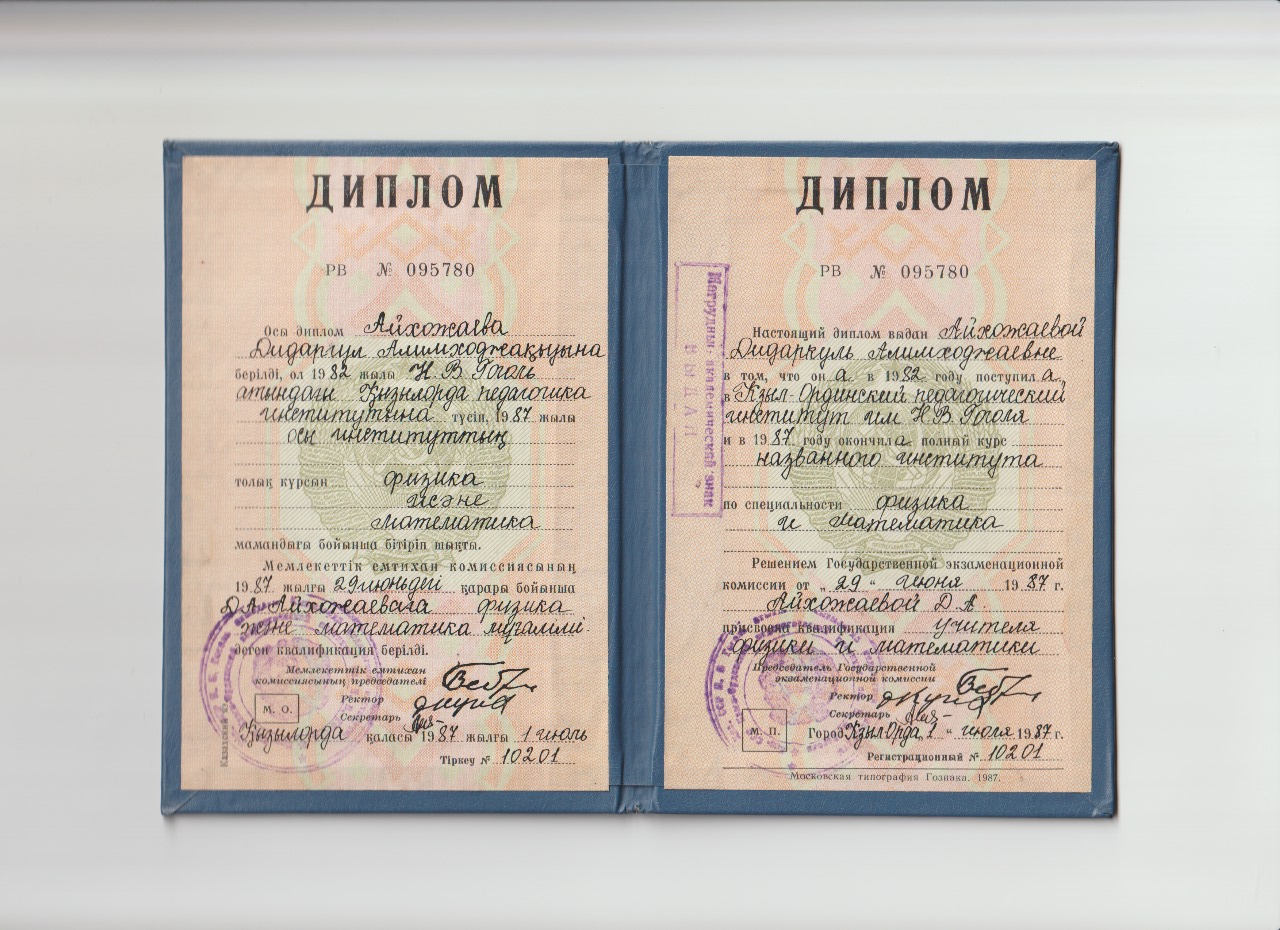 ДИПЛОМ
РВ № 095780
Осы диплом Айхожаева
Дидаргул Алимходжақызына
берілді, ол 1982 жылы Н. В. Гоголь
атындағы Қызылорда педагогика
институтына түсіп, 1987 жылы
осы институттың
толық курсын физика
және
математика
мамандығы бойынша бітіріп шықты.
Мемлекеттік емтихан комиссиясының
1987 жылғы 29 июньдегі қарары бойынша
Д.А. Айхожаеваға физика
және математика мұғалімі
деген квалификация берілді.
Мемлекеттік емтихан
комиссиясының председателі
Ректор
Секретарь
М. О.
Қызылорда қаласы 1987 жылғы 1 июль
Тіркеу № 10201
ДИПЛОМ
РВ № 095780
Настоящий диплом выдан Айхожаевой
Дидаркуль Алимходжаевне
в том, что он а в 1982 году поступил а
в Кзыл-Ординский педагогический
институт им Н.В. Гоголя
и в 1987 году окончил а полный курс
названного института
по специальности физика
и математика
Решением Государственной экзаменационной
комиссии от „29“ июня 1987 г.
Айхожаевой Д. А.
присвоена квалификация учителя
физики и математики
Председатель Государственной
экзаменационной комиссии
Ректор
Секретарь
М. П.
Город Кзыл-Орда, 1 “ июля 1987 г.
Регистрационный № 10201
Московская типография Гознака. 1987.
Нагрудный академический знак
ВЫДАН